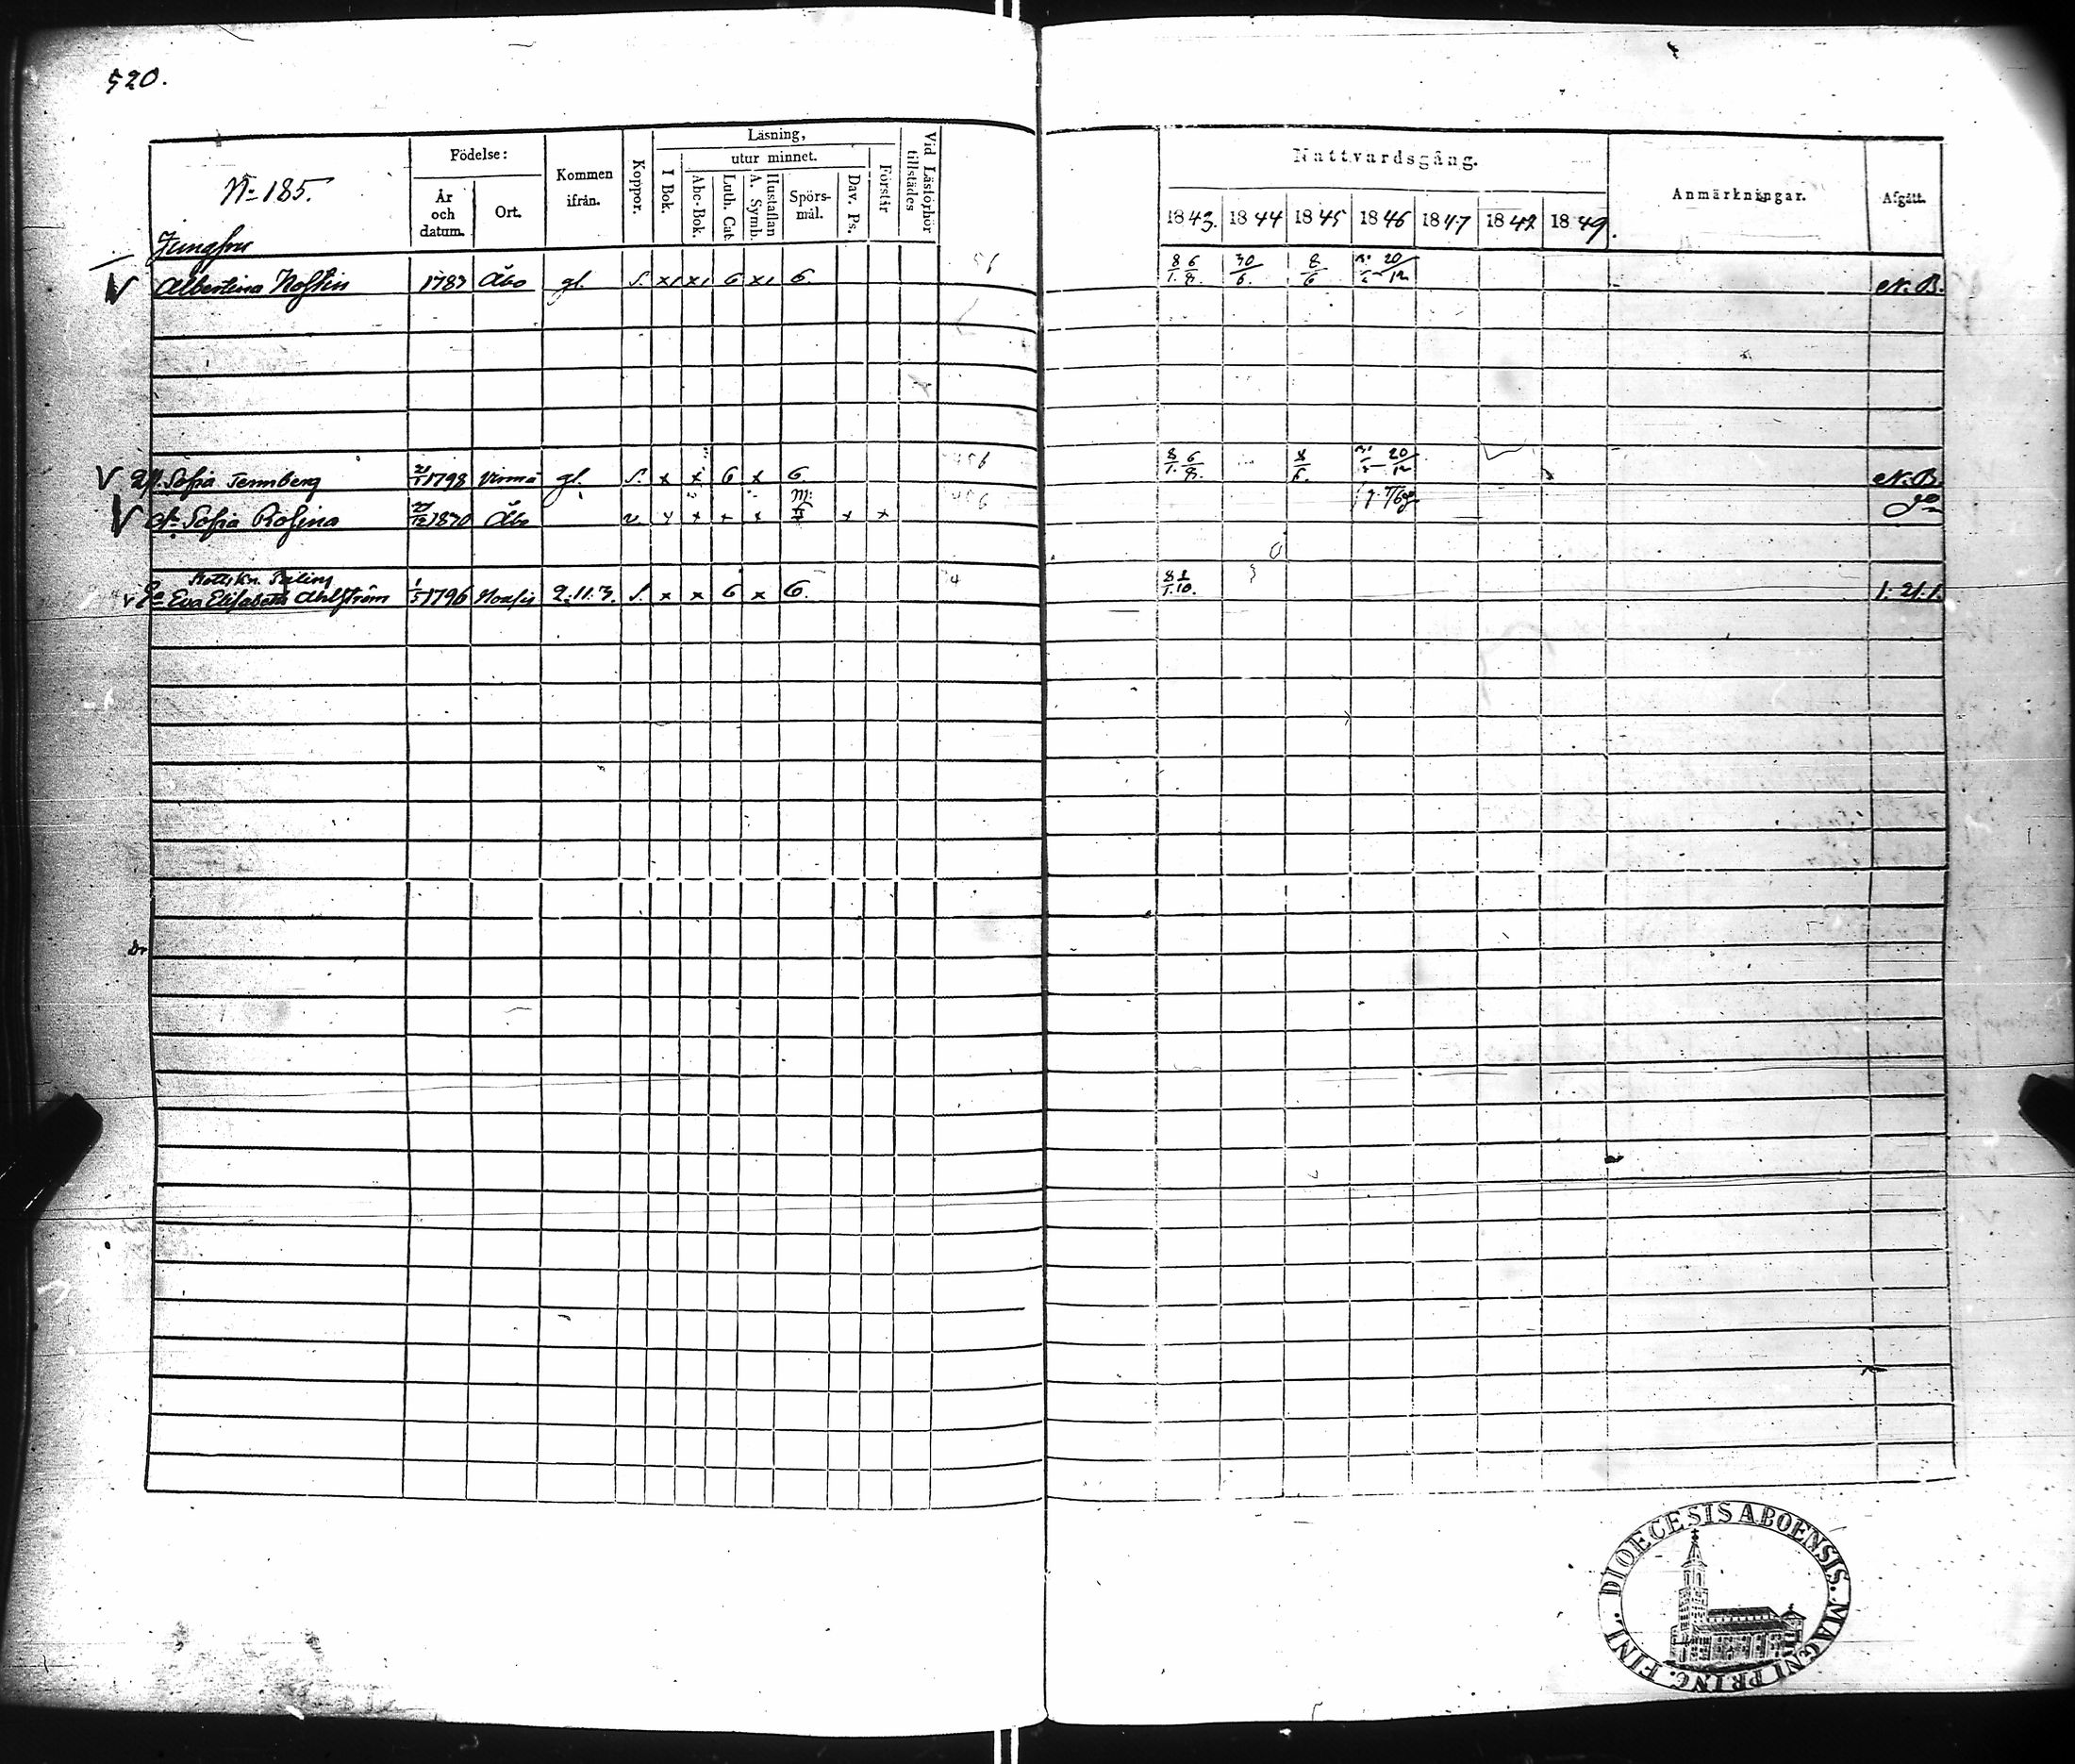 520.
No 185.
Födelse:
År och datum.
Ort.
Kommen ifrån.
Koppor.
Läsning,
I Bok.
utur minnet.
Abc-Bok.
Luth. Cat.
Hustaflan A. Symb.
Spörs-mål.
Dav. Ps.
Förstår
Vid Läsförhör tillstädes
Nattvardsgång.
1843. 1844 1845 1846 1847 1842 1849.
Anmärkningar.
Afgått.
Jungfru
Albertina 1783 Åbo gl. S. x x 6 x 6. 8/1. 6/8. 30/6. 8/6 20/12 N. B.
Sofia 21/1 1798 Virmo gl. S. x x 6 x 6. 8/1. 6/8. 8/6. 20/12 N. B.
Sofia Rosina 1830 Åbo v. x x x x x x
Eva Elisabeth Ahlström 1/5 1796 2.11.3. S. x x 6 x 6. 8/1. 1/10. 1. 21. 1.
DIOECESIS ABOENSIS. MAGNI PRINC. FINL.